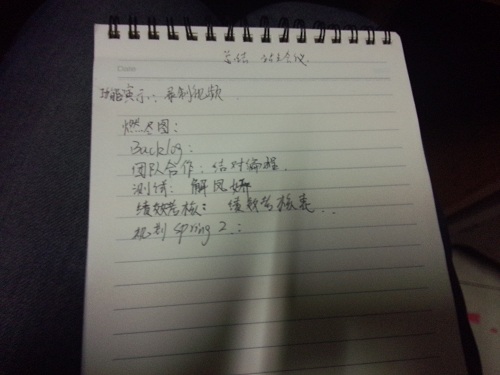 总结 站立会议
Date
功能演示：录制视频
燃尽图：
Backlog：
团队合作：结对编程
测试：解凤娜
绩效考核：绩效考核表...
规划 spring 2：